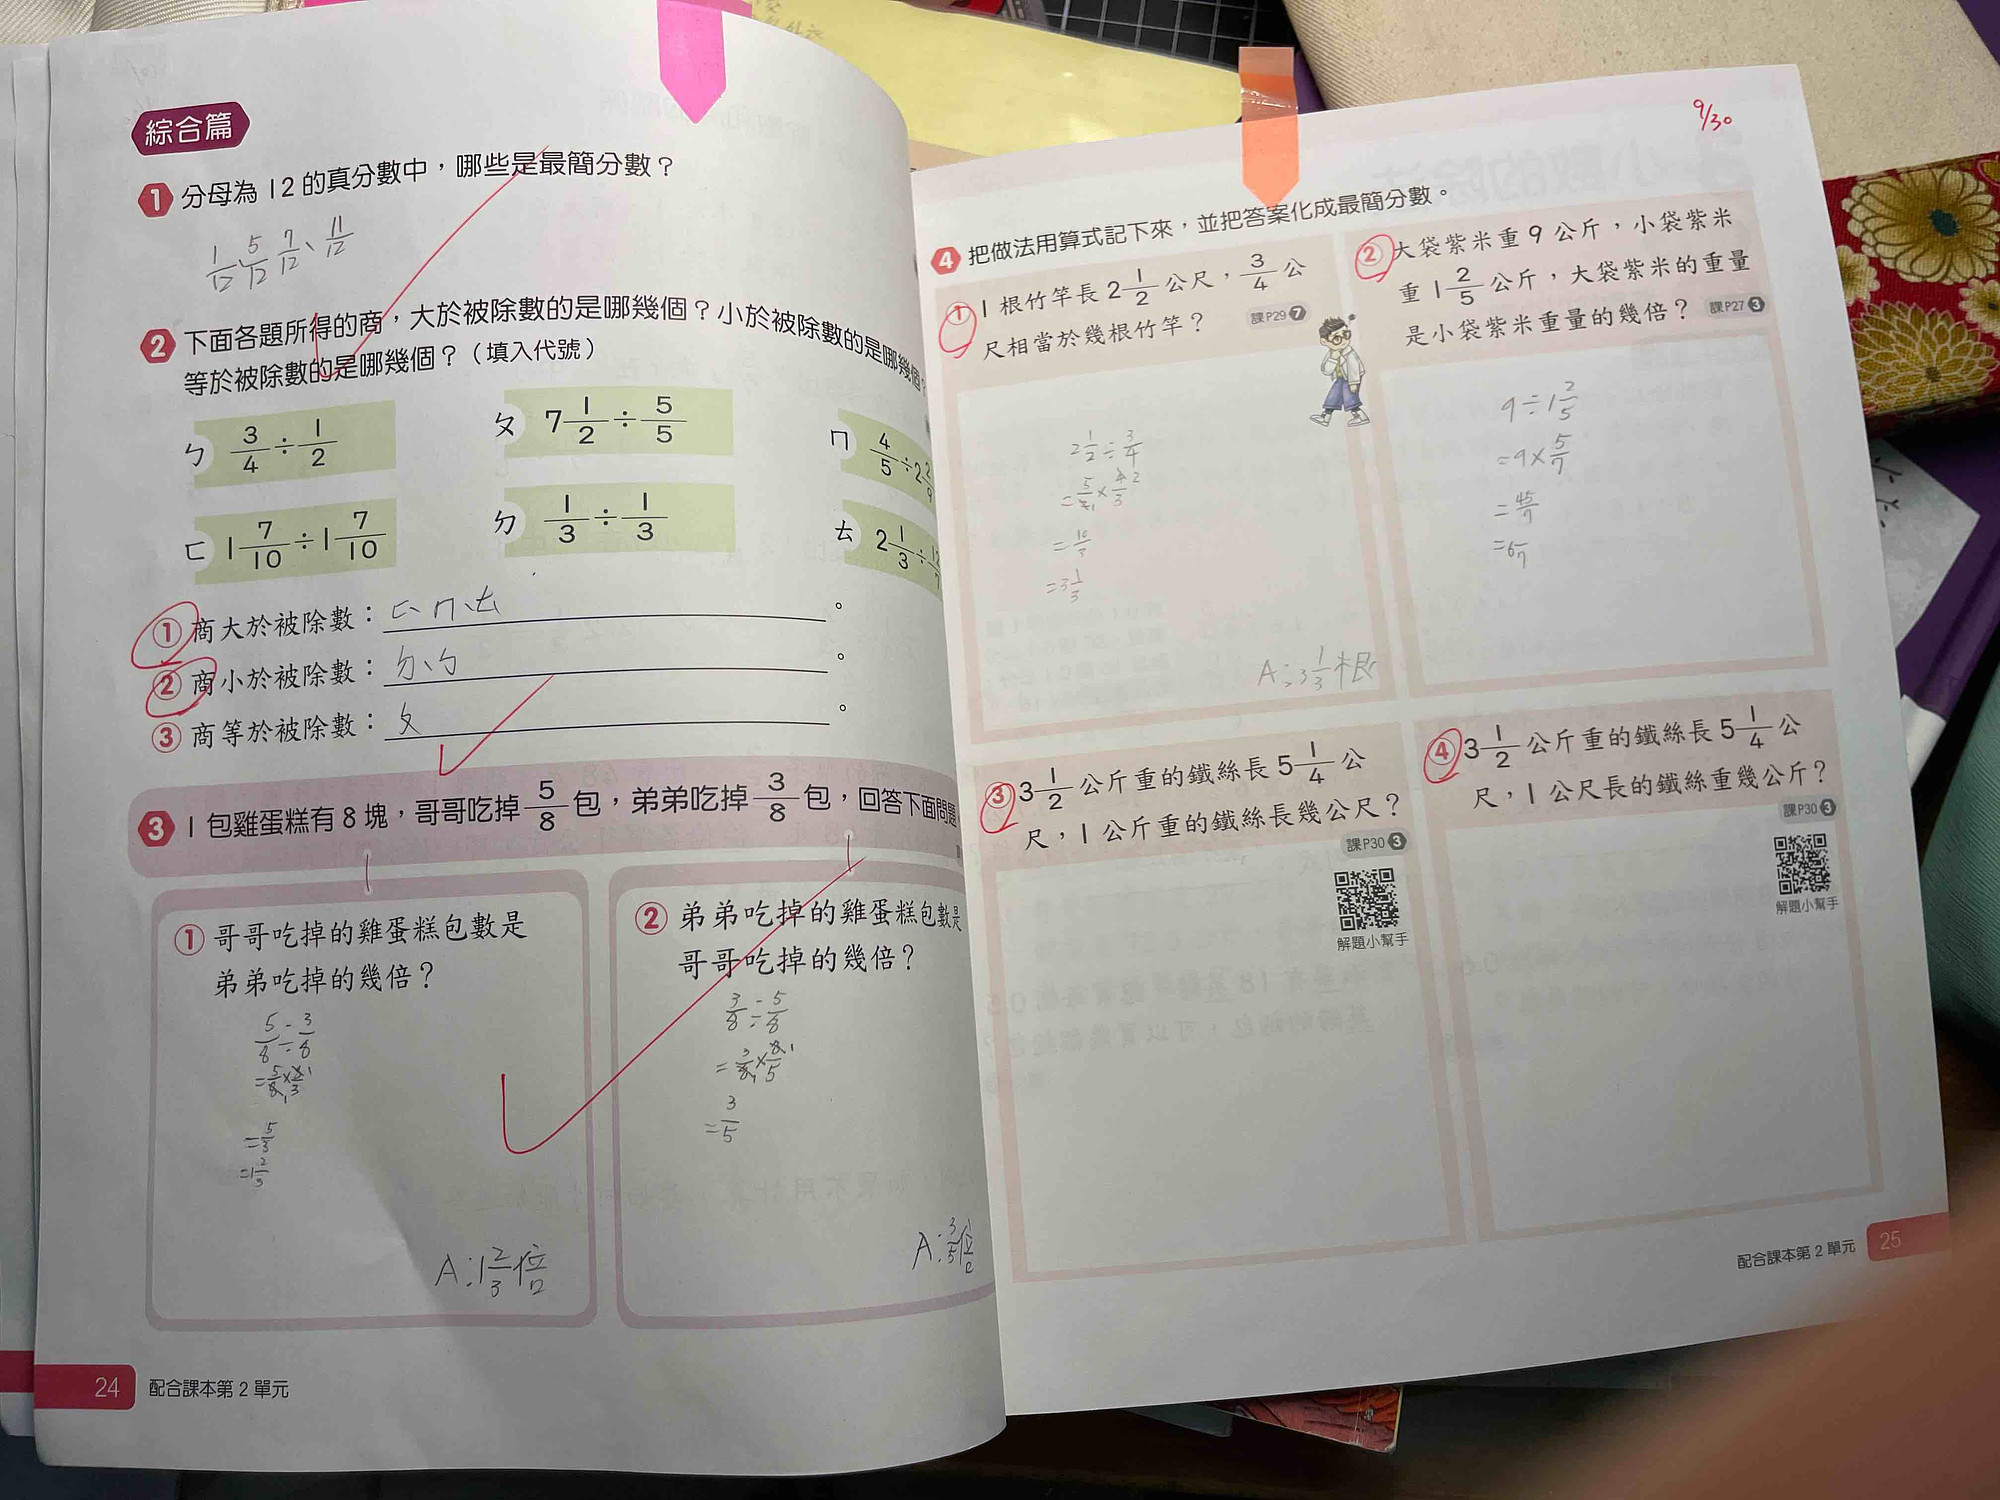 綜合篇
1 分母為12的真分數中，哪些是最簡分數？
1/12、5/12 7/12、11/12
2 下面各題所得的商，大於被除數的是哪幾個？小於被除數的是哪幾個？
等於被除數的是哪幾個？（填入代號）
ㄅ 3/4÷1/2 ㄆ 7 1/2÷5/5 ㄇ 4/5÷2 2/9
ㄈ 1 7/10÷1 7/10 ㄉ 1/3÷1/3 ㄊ 2 1/3÷12/7
① 商大於被除數：ㄈ、ㄇ、ㄊ。
② 商小於被除數：ㄉ、ㄅ。
③ 商等於被除數：ㄆ。
3 1包雞蛋糕有8塊，哥哥吃掉5/8包，弟弟吃掉3/8包，回答下面問題
① 哥哥吃掉的雞蛋糕包數是
弟弟吃掉的幾倍？
5/8÷3/8
=5/8×8/3
=5/3
=1 2/3
A:1 2/3倍
② 弟弟吃掉的雞蛋糕包數是
哥哥吃掉的幾倍？
3/8÷5/8
=3/8×8/5
=3/5
A:3/5倍
24 配合課本第2單元
9/30
4 把做法用算式記下來，並把答案化成最簡分數。
① 1根竹竿長2 1/2公尺，3/4公
尺相當於幾根竹竿？ 課P29 7
2 1/2÷3/4
=5/2×4/3
=10/3
=3 1/3
A:3 1/3根
② 大袋紫米重9公斤，小袋紫米
重1 2/5公斤，大袋紫米的重量
是小袋紫米重量的幾倍？ 課P27 3
9÷1 2/5
=9×5/7
=45/7
③ 3 1/2公斤重的鐵絲長5 1/4公
尺，1公斤重的鐵絲長幾公尺？
課P30 3
解題小幫手
④ 3 1/2公斤重的鐵絲長5 1/4公
尺，1公尺長的鐵絲重幾公斤？
課P30 3
解題小幫手
配合課本第2單元 25